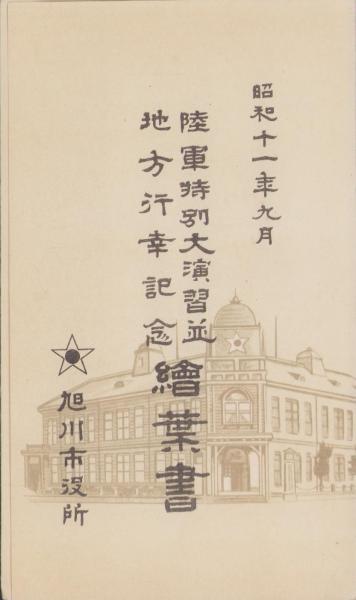 昭和十一年九月
陸軍特別大演習並
地方行幸記念
繪葉書
旭川市役所